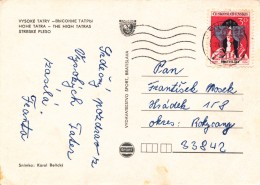 VYSOKÉ TATRY – ВЫСОКИЕ ТАТРЫ
HOHE TATRA – THE HIGH TATRAS
ŠTRBSKÉ PLESO
Srdečný pozdrav z
Vysokých Tater
zasílá
Franta
Snímka: Karol Belický
VYDAVATEĽSTVO SPORT, BRATISLAVA
ČESKOSLOVENSKO
Pan
František Mosek
Hrádek 158
okres: Rokycany
33842